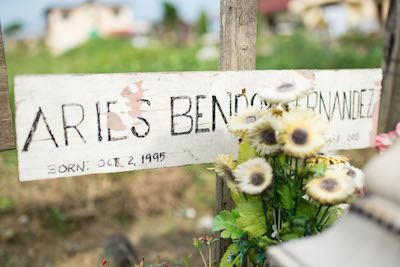 ARIES BENDO FERNANDEZ
BORN: OCT. 2, 1995 2013